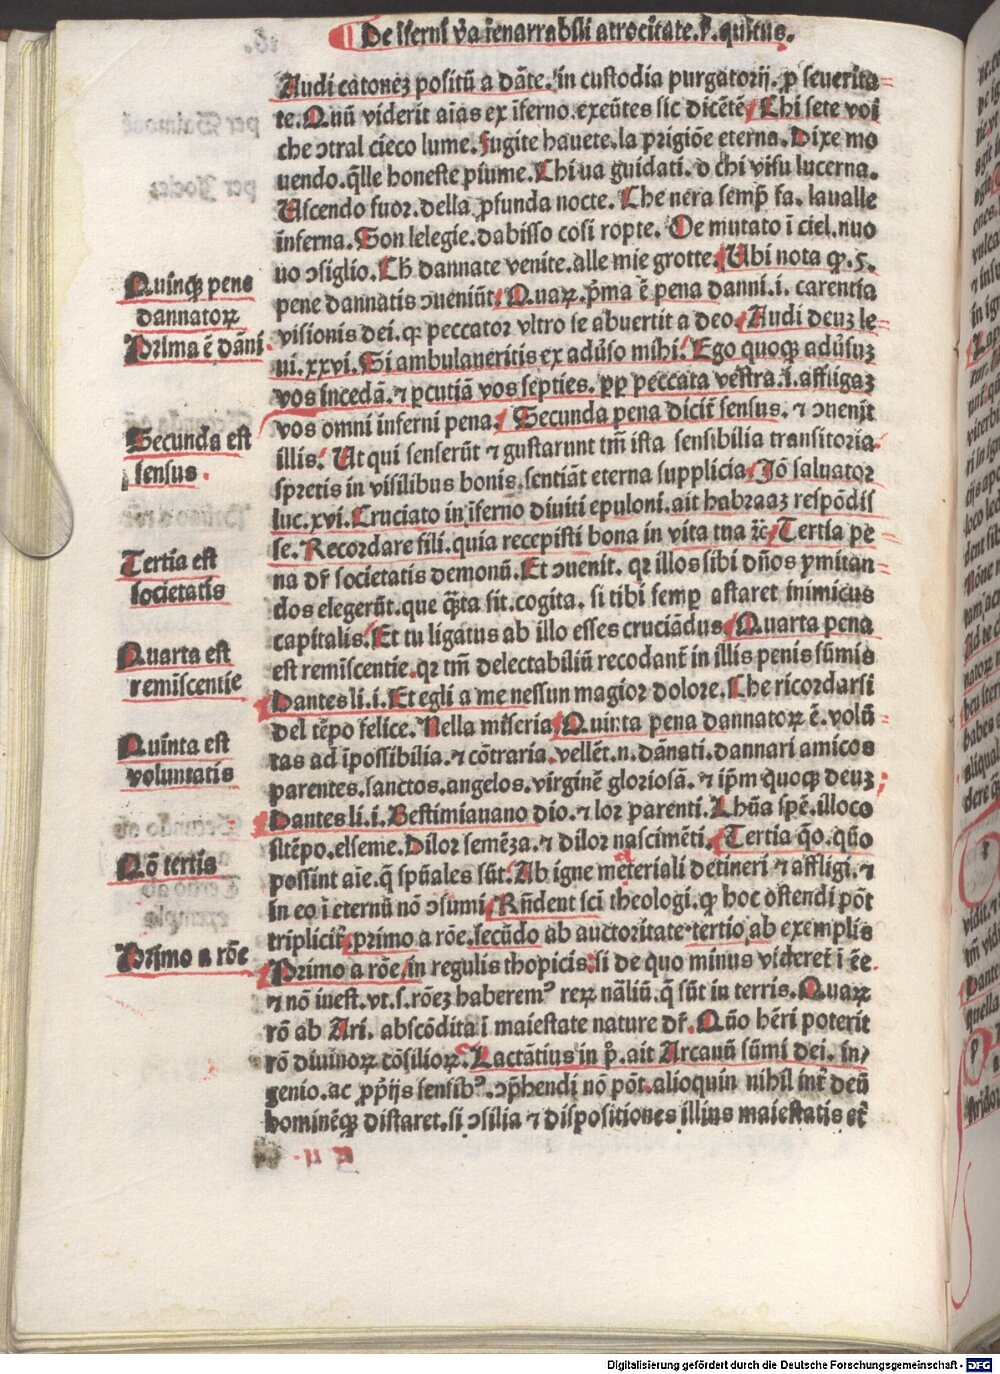 De īferni v̄a īenarrabili atrocitate. p̄. quītus.
Audi catonez positū a dāte. in custodia purgatorij. p seuerita
te. Quū viderit aīas ex īferno. exeūtes sic dicētē Chi sete voi
che ↄtral cieco lume. Fugite hauete. la prigiōe eterna. Dixe mo
uendo. q̄lle honeste piume. Chi ua guidati. o chi vi fu lucerna.
Uscendo fuor. della ꝓfunda nocte. Che nera semp̄ fa. la ualle
inferna. Son le legie. dabisso cosi ropte. Oe mutato ī ciel. nuo
uo ↄsiglio. Ch̄ dannate venite. alle mie grotte. Ubi nota qꝫ. 5.
pene dannatis ↄueniūt. Quaꝝ. p̄ma ē pena danni. i. carentia
visionis dei. qꝛ peccator vltro se abuertit a deo. Audi deuz le
ui. xxvi. Si ambulaueritis ex adūso mihi. Ego quoqꝫ adūsuz
vos incedā. ⁊ ꝑcutiā vos septies. ꝓpꝫ peccata vestra. i. affligaz
vos omni inferni pena. Secunda pena dicit̄ sensus. ⁊ ↄuenit
illis. Ut qui senserūt ⁊ gustarunt tm̄ ista sensibilia transitoria.
spretis in visilibus bonis. sentiāt eterna supplicia. Jō saluator
luc. xvi. Cruciato in īferno diuiti epuloni. ait habraaz respōdis
se. Recordare fili. quia recepisti bona in vita tua ꝛc̄ Tertia pe
na dr̄ societatis demonū. Et ↄuenit. qꝛ illos sibi dn̄os ꝓmitan
dos elegerūt. que q̄ta sit. cogita. si tibi semꝑ astaret inimicus
capitalis. Et tu ligatus ab illo esses cruciādus. Quarta pena
est remīscentie. qꝛ tm̄ delectabiliū recodant̄ in illis penis sūmis
Dantes li. i. Et egli a me nessun magior dolore. Che ricordarsi
del tēpo felice. Nella miseria. Quinta pena dannatoꝝ ē. volū
tas ad īpossibilia. ⁊ cōtraria. vellēt. n. dānati. dannari amicos
parentes. sanctos. angelos. virginē gloriosā. ⁊ ip̄m quoqꝫ deuz
Dantes li. i. Bestimiauano dio. ⁊ lor parenti. Lhūa spē. il loco
il tēpo. el seme. Di lor semēza. ⁊ di lor nascimēti. Tertia q̄o. quō
possint aīe. q̄ spūales sūt. Ab igne meteriali detineri ⁊ affligi. ⁊
in eo ī eternū nō ↄsumi. Rn̄dent sci theologi. qꝫ hoc ostendi pōt
triplicit̄. primo a rōe. secūdo ab auctoritate. tertio ab exemplis
Primo a rōe. in regulis thopicis: si de quo minus videret ī ēe.
⁊ nō inest. vt. s. rōez haberem⁹ reꝝ nāliū. q̄ sūt in terris. Quaꝝ
rō ab Ari. abscōdita ī maiestate nature dr̄. Quō hēri poterit
rō diuinoꝝ cōsilioꝝ. Lactātius in p̄. ait Arcanū sūmi dei. in/
genio. ac ꝓprijs sensib⁹. ↄp̄hendi nō pōt. alioquin nihil int̄ deū
hominēqꝫ distaret. si ↄsilia ⁊ dispositiones illius maiestatis et̄
Quinqꝫ pene
dannatoꝝ
Prima ē dāni
Secunda est
sensus.
Tertia est
societatis
Quarta est
remīscentie
Quinta est
voluntatis
Qō tertia
Primo a rōe
Digitalisierung gefördert durch die Deutsche Forschungsgemeinschaft - DFG